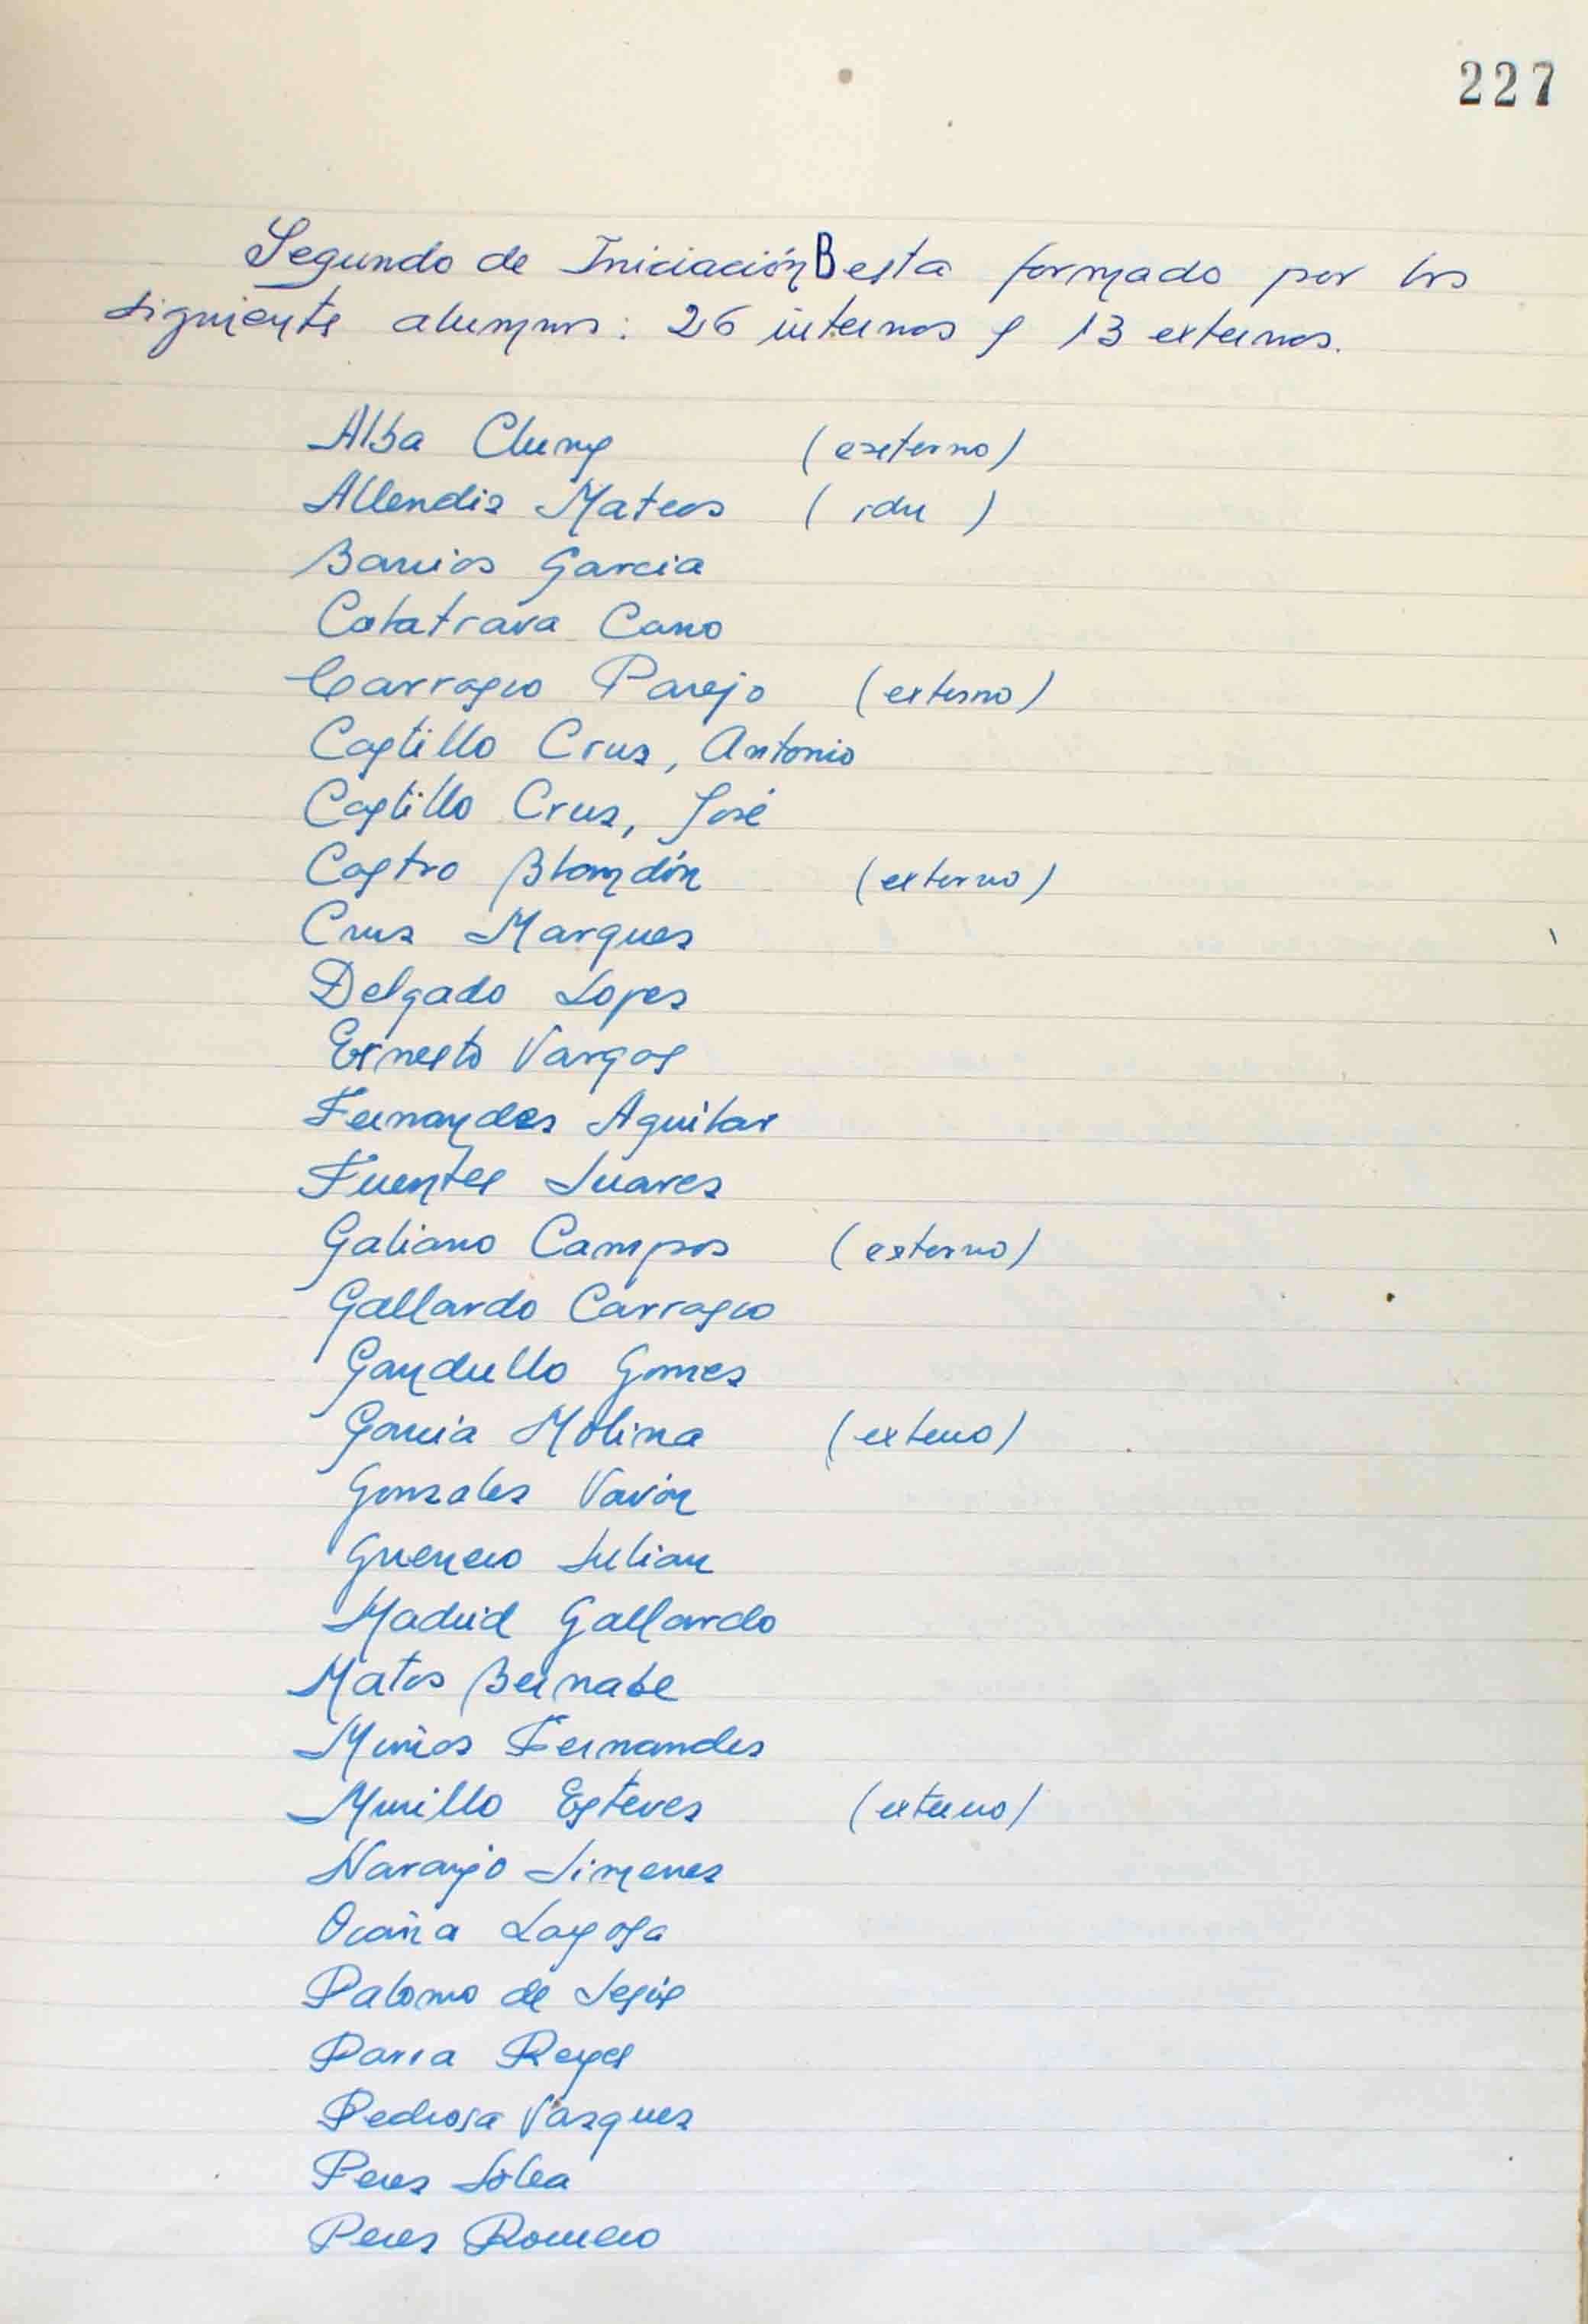 227
Segundo de Iniciación B esta formado por los
siguiente alumnos: 26 internos y 13 externos.
Alba Cluny (externo)
Allendiz Mateos (idn)
Barrios Garcia
Calatrava Cano
Carrasco Parejo (externo)
Castillo Cruz, Antonio
Castillo Cruz, José
Castro Blandón (externo)
Cruz Marquez
Delgado Lopez
Ernesto Vargas
Fernandez Aguilar
Fuentes Suarez
Galiano Campos (externo)
Gallardo Carrasco
Gandullo Gomez
Garcia Molina (externo)
Gonzalez Vavón
Guerrero Julian
Madrid Gallardo
Matos Bernabe
Muñoz Fernandez
Murillo Estevez (externo)
Naranjo Jimenez
Ocaña Lagosa
Palomo de Jesús
Parra Reyes
Pedrosa Vazquez
Perez Solea
Perez Romero